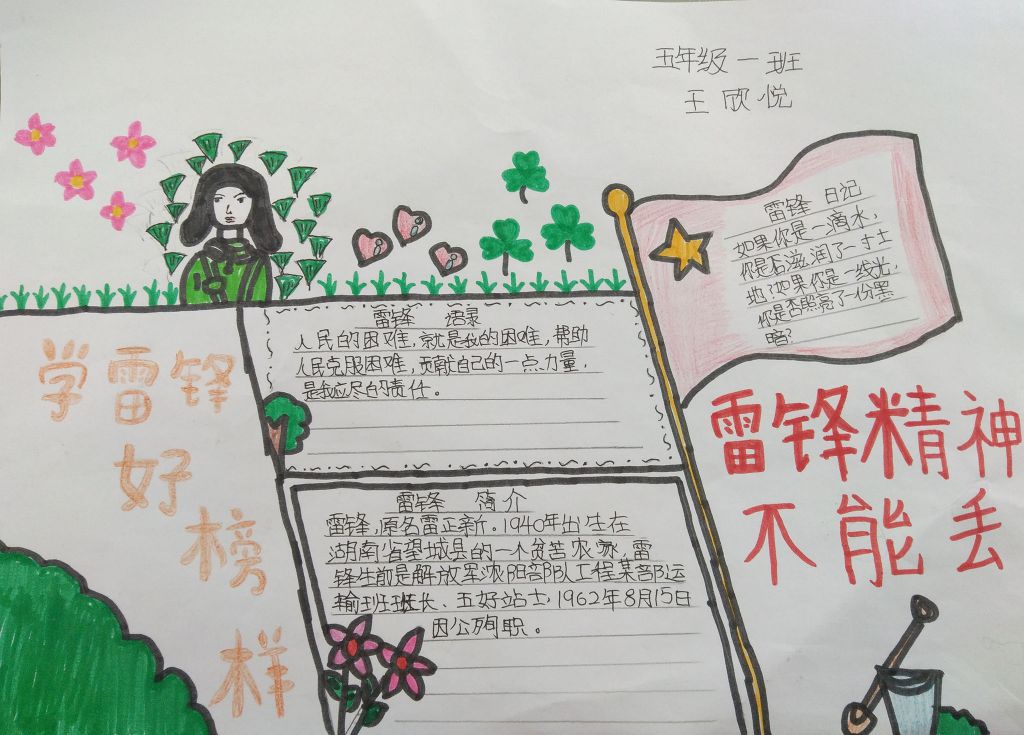 五年级一班
王欣悦
雷锋 日记
如果你是一滴水，
你是否滋润了一寸土
地？如果你是一线光，
你是否照亮了一份黑
暗？
雷锋 语录
人民的困难，就是我的困难，帮助
人民克服困难，贡献自己的一点力量，
是我应尽的责任。
学雷锋
好
榜
样
雷锋精神
不能丢
雷锋 简介
雷锋，原名雷正新。1940年出生在
湖南省望城县的一个贫苦农家，雷
锋生前是解放军沈阳部队工程某部运
输班班长、五好站士，1962年8月15日
因公殉职。